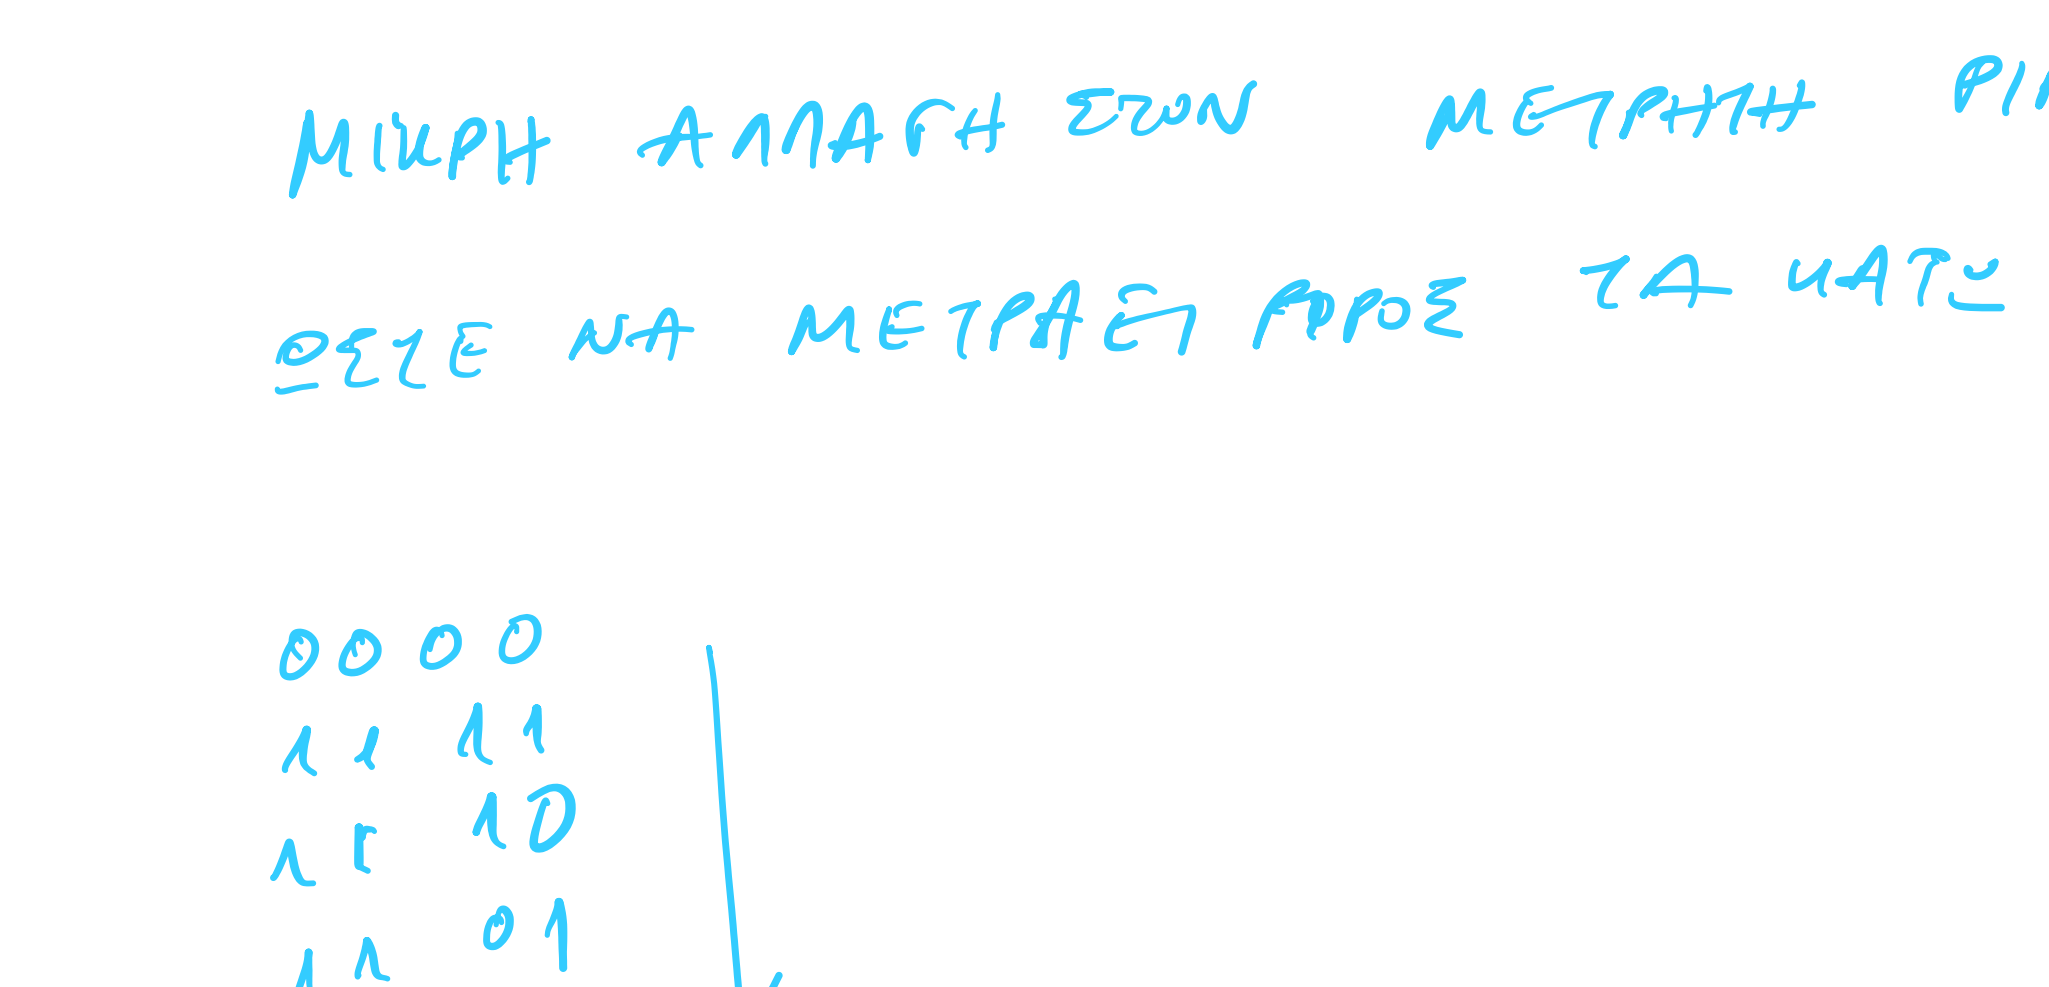 ΜΙΚΡΗ ΑΛΛΑΓΗ ΣΤΟΝ ΜΕΤΡΗΤΗ
ΩΣΤΕ ΝΑ ΜΕΤΡΑΕΙ ΠΡΟΣ ΤΑ ΚΑΤΩ
0000
1111
1110
1101